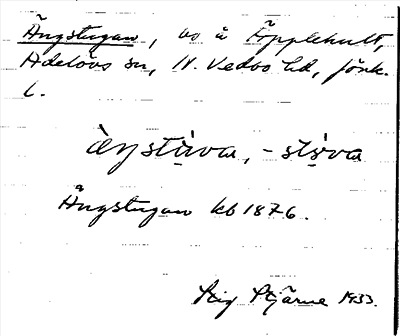 Ängstugan, vo å Äpplehult,
Adelövs sn, N. Vedbo hd, Jönk.
l.
àŋstùva, -stòva
Ängstugan kb 1876.
Stig Stjärne 1933.